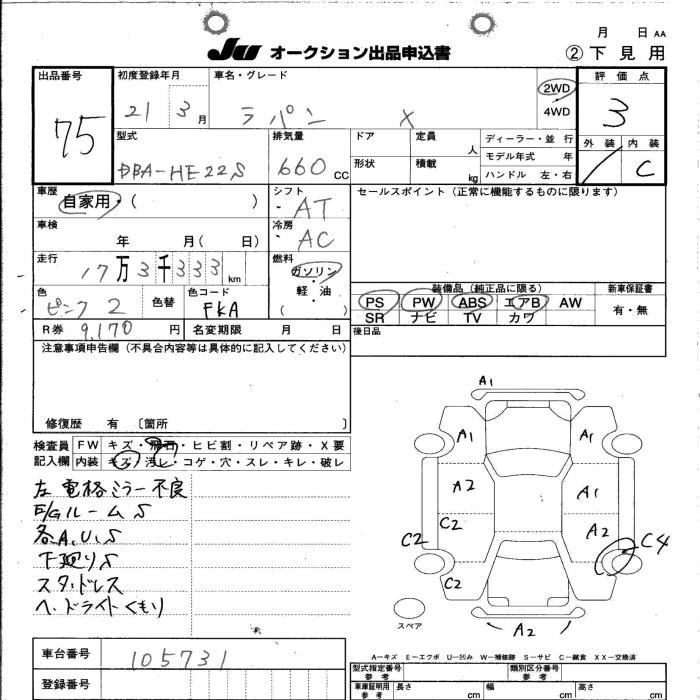 月 日 AA
JU オークション出品申込書
② 下見用
出品番号 75
初度登録年月 21 3月
車名・グレード ラパン X
2WD
4WD
評価点 3
外装 内装 C
型式 DBA-HE22S
排気量 660 CC
ドア 定員 人
形状 積載 kg
ディーラー・並行
モデル年式 年
ハンドル 左・右
車歴 自家用・( )
シフト AT
セールスポイント(正常に機能するものに限ります)
車検 年 月( 日)
冷房 AC
走行 17万3千333km
燃料 ガソリン・軽油 ( )
色 ピンク2 色替 色コード FKA
装備品(純正品に限る) 新車保証書
PS PW ABS エアB AW 有・無
SR ナビ TV カワ
R券 9,170円 名変期限 月 日
後日品
注意事項申告欄(不具合内容等は具体的に記入してください)
修復歴 有 〔箇所 〕
検査員 FW キズ・飛石・ヒビ割・リペア跡・X要
記入欄 内装 キズ・汚レ・コゲ・穴・スレ・キレ・破レ
左電格ミラー不良
E/Gルーム S
各A.U.S
下廻りS
スタッドレス
ヘッドライトくもり
A1
A1 A1
A2 A1
C2 A2
C2 C4
C2
A2
スペア
A―キズ E―エクボ U―凹み W―補修跡 S―サビ C―腐食 XX―交換済
車台番号 105731
登録番号
型式指定番号 参考 類別区分番号 参考
車庫証明用 参考 長さ cm 幅 cm 高さ cm